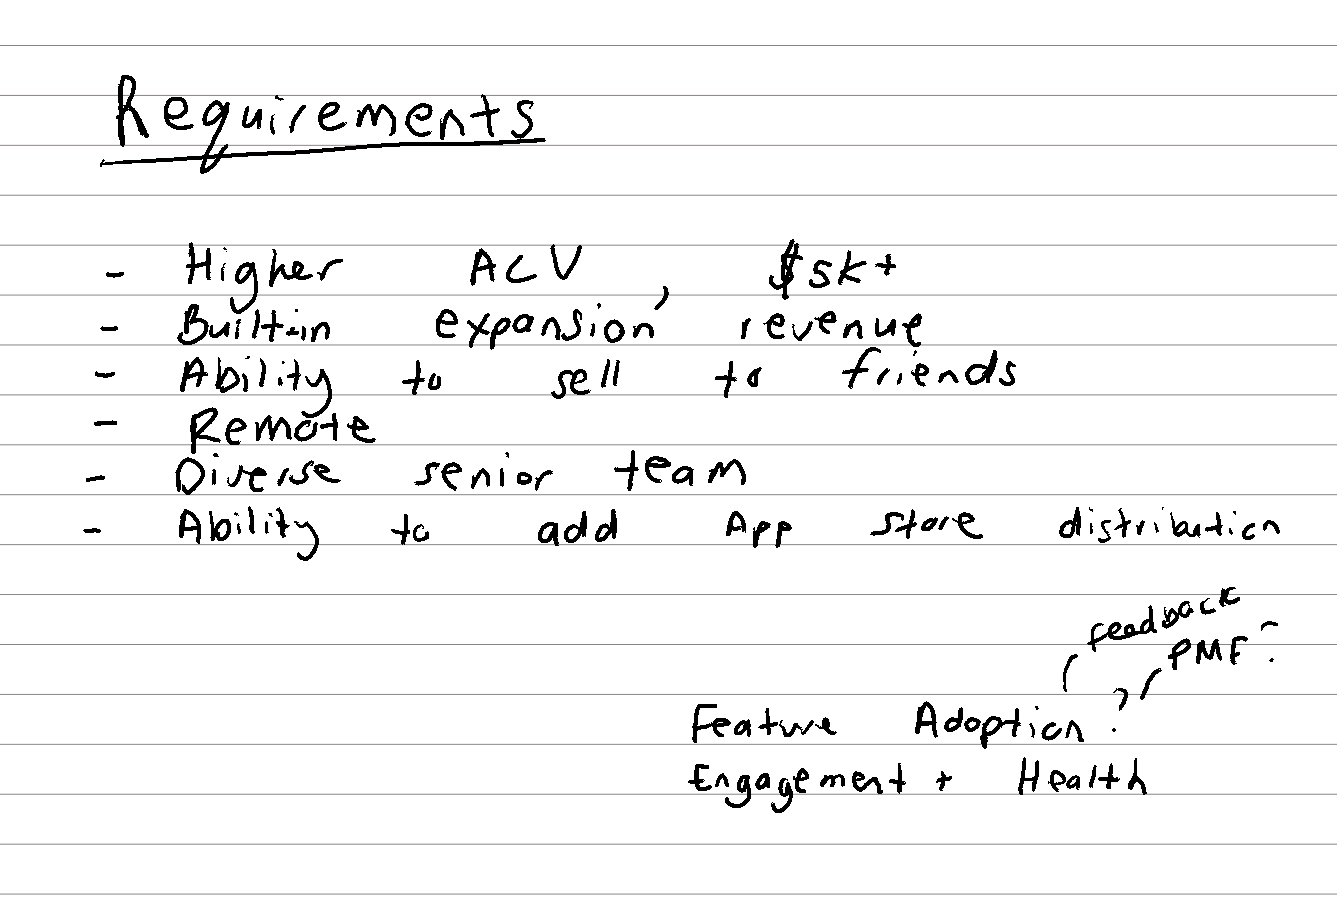 Requirements
- Higher ACV, $5k+
- Built-in expansion revenue
- Ability to sell to friends
- Remote
- Diverse senior team
- Ability to add App store distribution
feedback
PMF?
Feature Adoption?
Engagement + Health